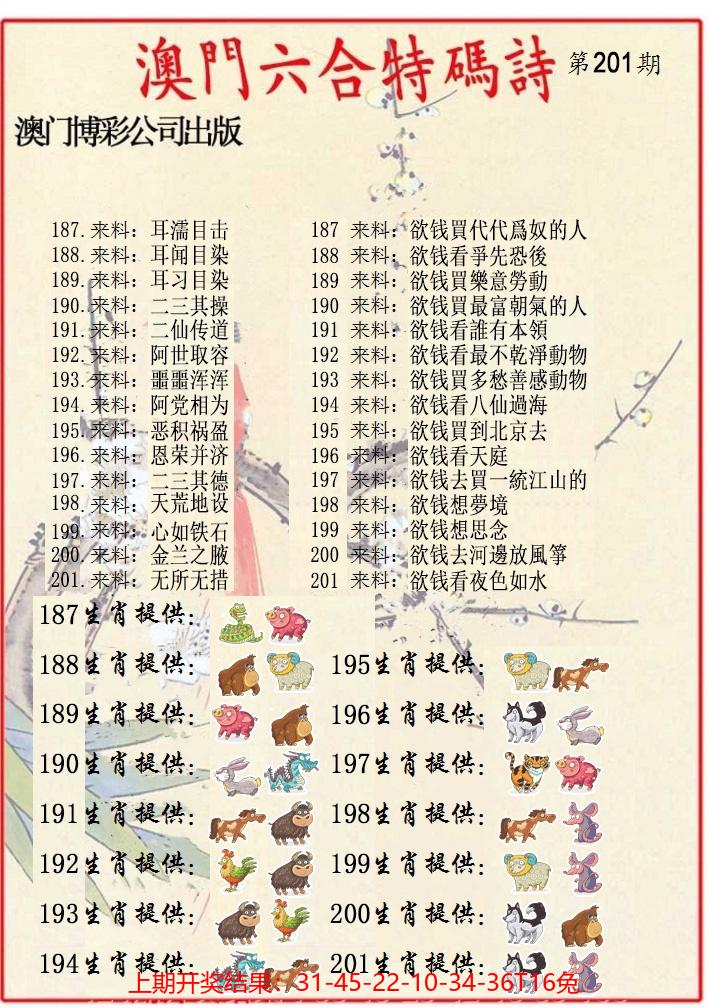 澳門六合特碼詩 第201期
澳门博彩公司出版
187.来料：耳濡目击
188.来料：耳闻目染
189.来料：耳习目染
190.来料：二三其操
191.来料：二仙传道
192.来料：阿世取容
193.来料：噩噩浑浑
194.来料：阿党相为
195.来料：恶积祸盈
196.来料：恩荣并济
197.来料：二三其德
198.来料：天荒地设
199.来料：心如铁石
200.来料：金兰之腋
201.来料：无所无措
187 来料：欲钱買代代爲奴的人
188 来料：欲钱看爭先恐後
189 来料：欲钱買樂意勞動
190 来料：欲钱買最富朝氣的人
191 来料：欲钱看誰有本領
192 来料：欲钱看最不乾淨動物
193 来料：欲钱買多愁善感動物
194 来料：欲钱看八仙過海
195 来料：欲钱買到北京去
196 来料：欲钱看天庭
197 来料：欲钱去買一統江山的
198 来料：欲钱想夢境
199 来料：欲钱想思念
200 来料：欲钱去河邊放風箏
201 来料：欲钱看夜色如水
187生肖提供：
188生肖提供：
189生肖提供：
190生肖提供：
191生肖提供：
192生肖提供：
193生肖提供：
194生肖提供：
195生肖提供：
196生肖提供：
197生肖提供：
198生肖提供：
199生肖提供：
200生肖提供：
201生肖提供：
上期开奖结果：31-45-22-10-34-36T16兔